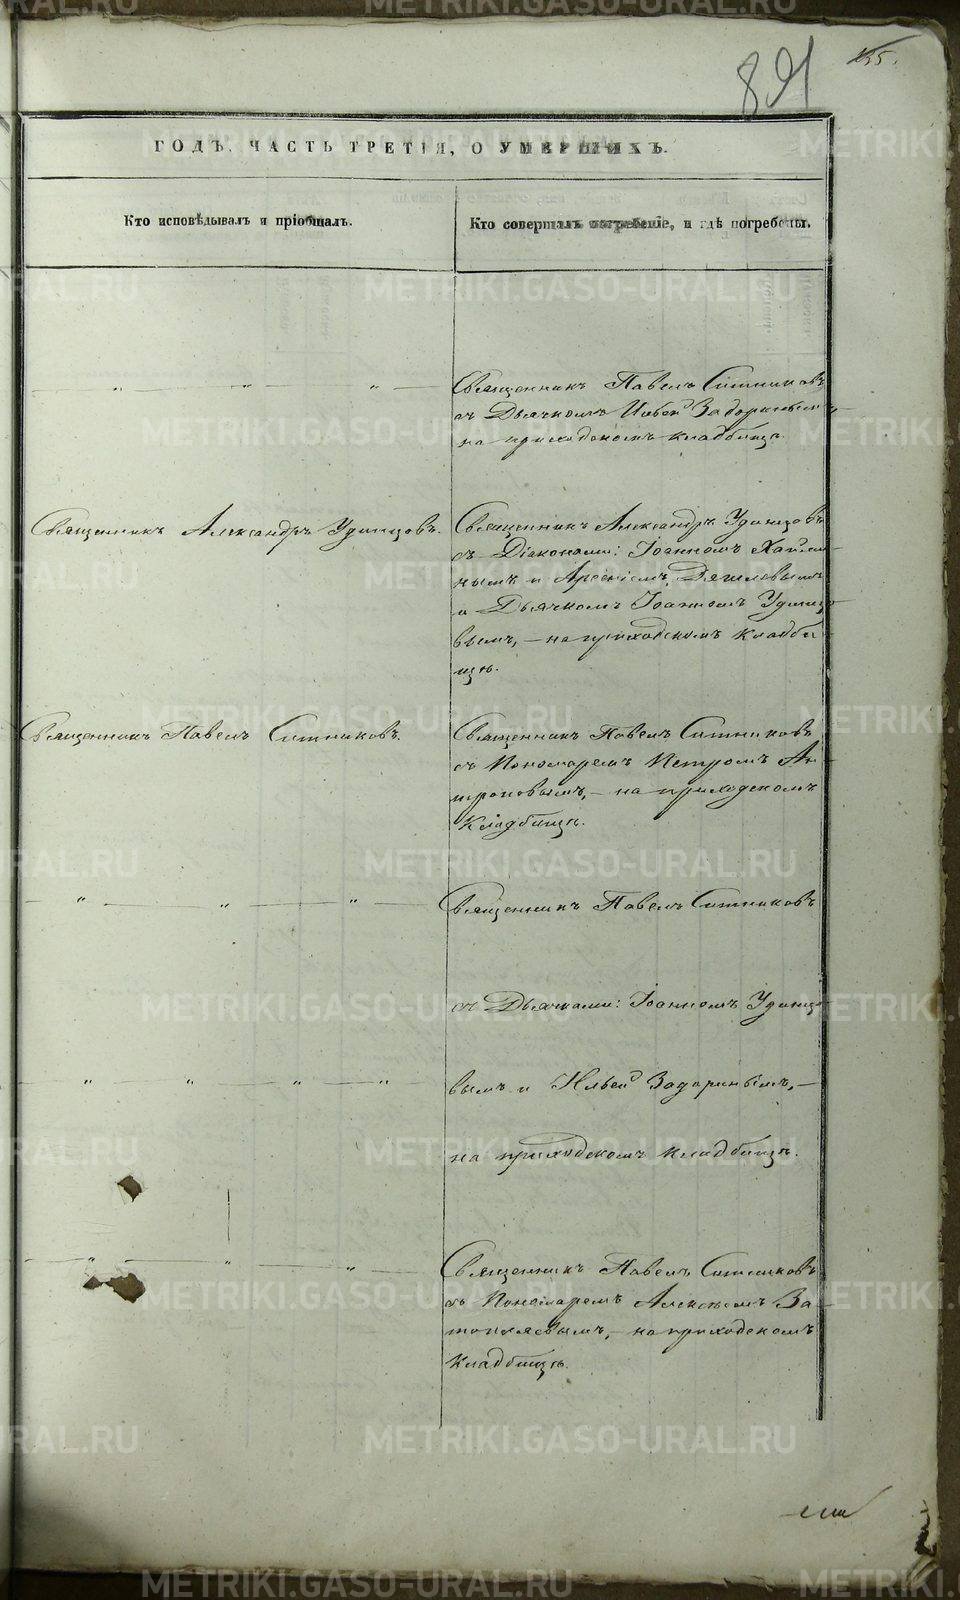 891
135.
ГОДЪ. ЧАСТЬ ТРЕТІЯ, О УМЕРШИХЪ.
Кто исповѣдывалъ и пріобщалъ.
Кто совершалъ погребеніе, и гдѣ погребены.
— " — " — " —
Священникъ Павелъ Ситниковъ
съ Дьячкомъ Ильей Задоринымъ,
на приходскомъ кладбищѣ.
Священникъ Александръ Удинцовъ.
Священникъ Александръ Удинцовъ
съ Діаконами: Іоанномъ
нымъ и Арсеніемъ
и Дьячкомъ Іоанномъ Удинцо-
вымъ, — на приходскомъ кладби-
щѣ.
Священникъ Павелъ Ситниковъ.
Священникъ Павелъ Ситниковъ
съ Пономаремъ Петромъ Ан-
троповымъ, — на приходскомъ
кладбищѣ.
— " — " — " —
Священникъ Павелъ Ситниковъ
съ Дьячками: Іоанномъ Удинцо-
— " — " — " — " —
вымъ и Ильей Задоринымъ, —
на приходскомъ кладбищѣ.
— " — " — " —
Священникъ Павелъ Ситниковъ
съ Пономаремъ Алексѣемъ За-
топляевымъ, — на приходскомъ
кладбищѣ.
METRIKI.GASO-URAL.RU